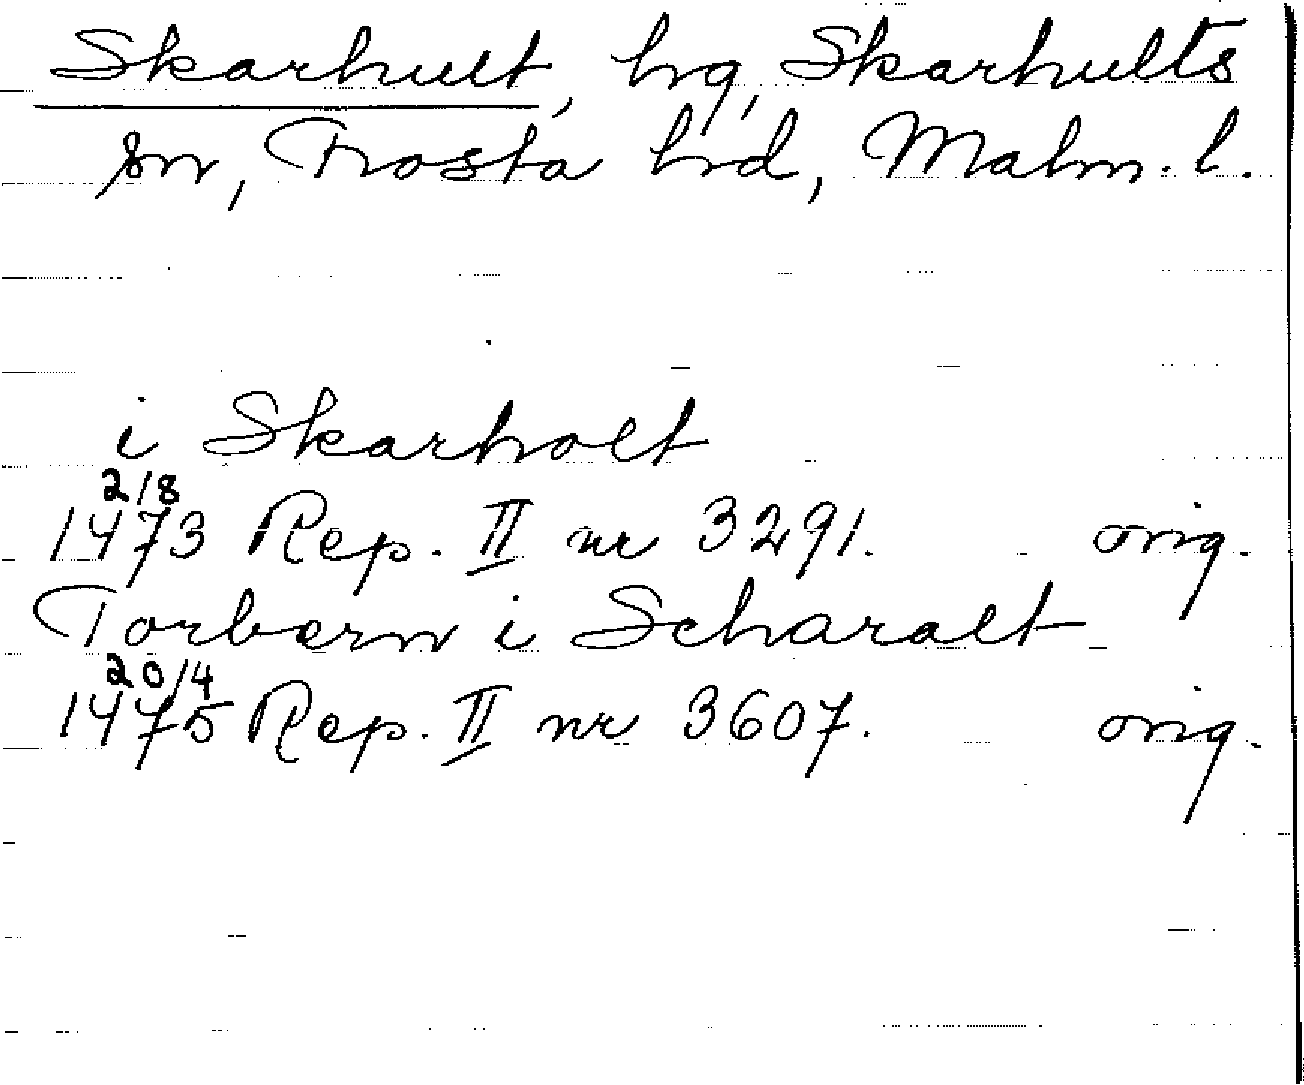 Skarhult, hg, Skarhults
sn, Frosta hrd, Malm. l.
i Skarholt
2/8
1473 Rep. II nr 3291. orig.
Torbern i Scharalt
20/4
1475 Rep. II nr 3607. orig.